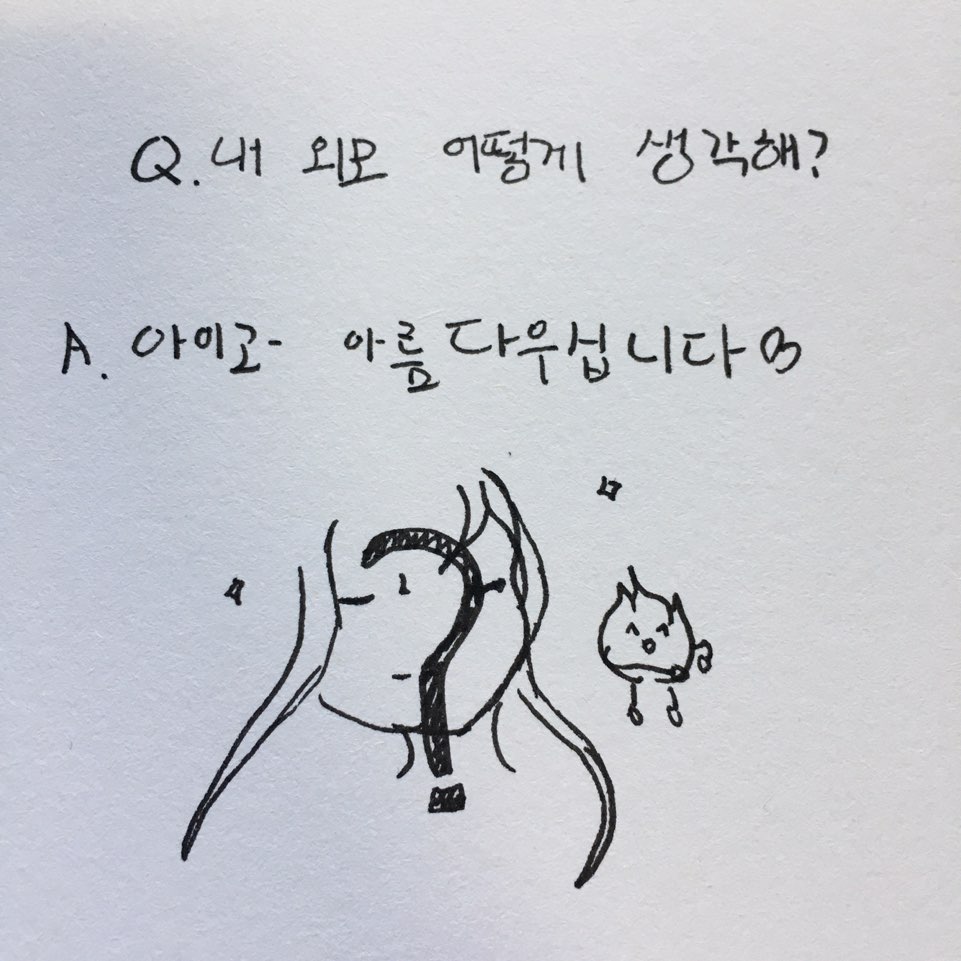 Q. 내 외모 어떻게 생각해?
A. 아이고- 아름다우십니다